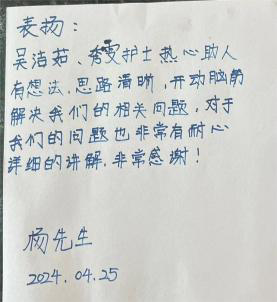 表扬：
吴洁茹、秀雯护士热心助人
有想法，思路清晰，开动脑筋
解决我们的相关问题，对于
我们的问题也非常有耐心
详细的讲解，非常感谢！
杨先生
2024.04.25